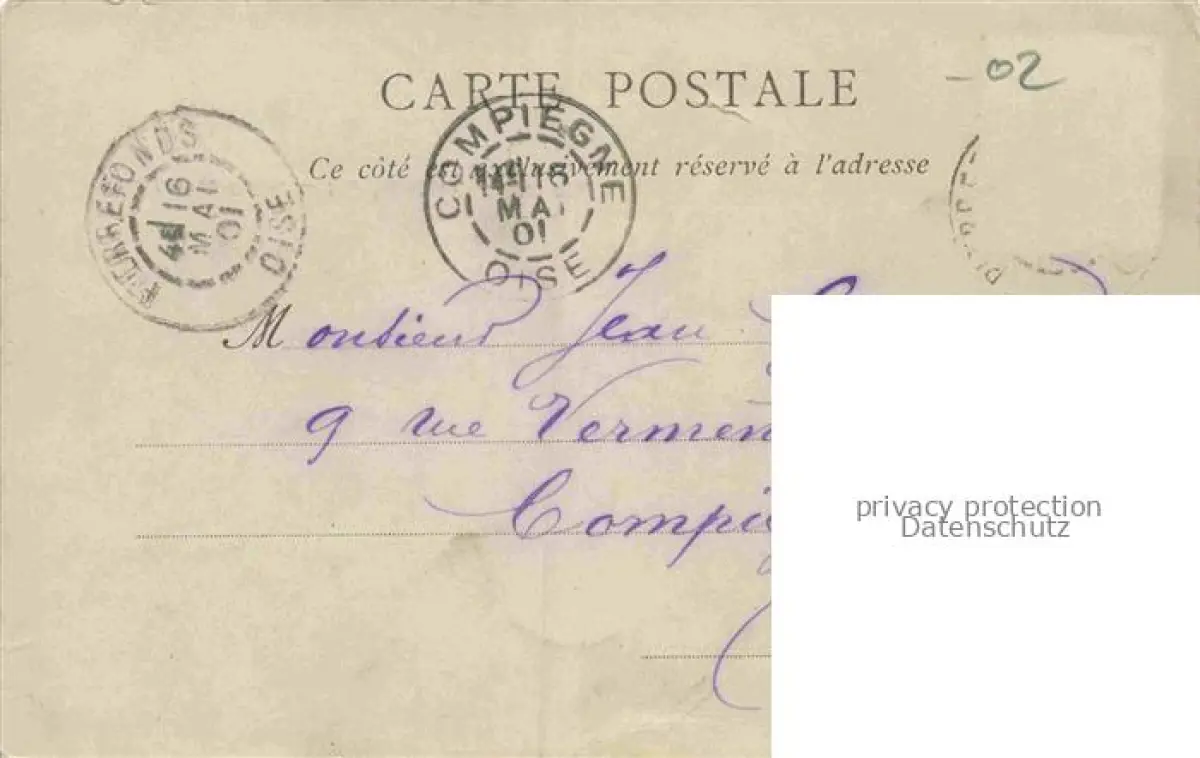 CARTE POSTALE
02
Ce côté est exclusivement réservé à l'adresse
PIERREFONDS
16
MAI
01
OISE
COMPIÈGNE
16
MAI
01
OISE
Monsieur Jean
9 rue Vermen
Compiè
privacy protection
Datenschutz